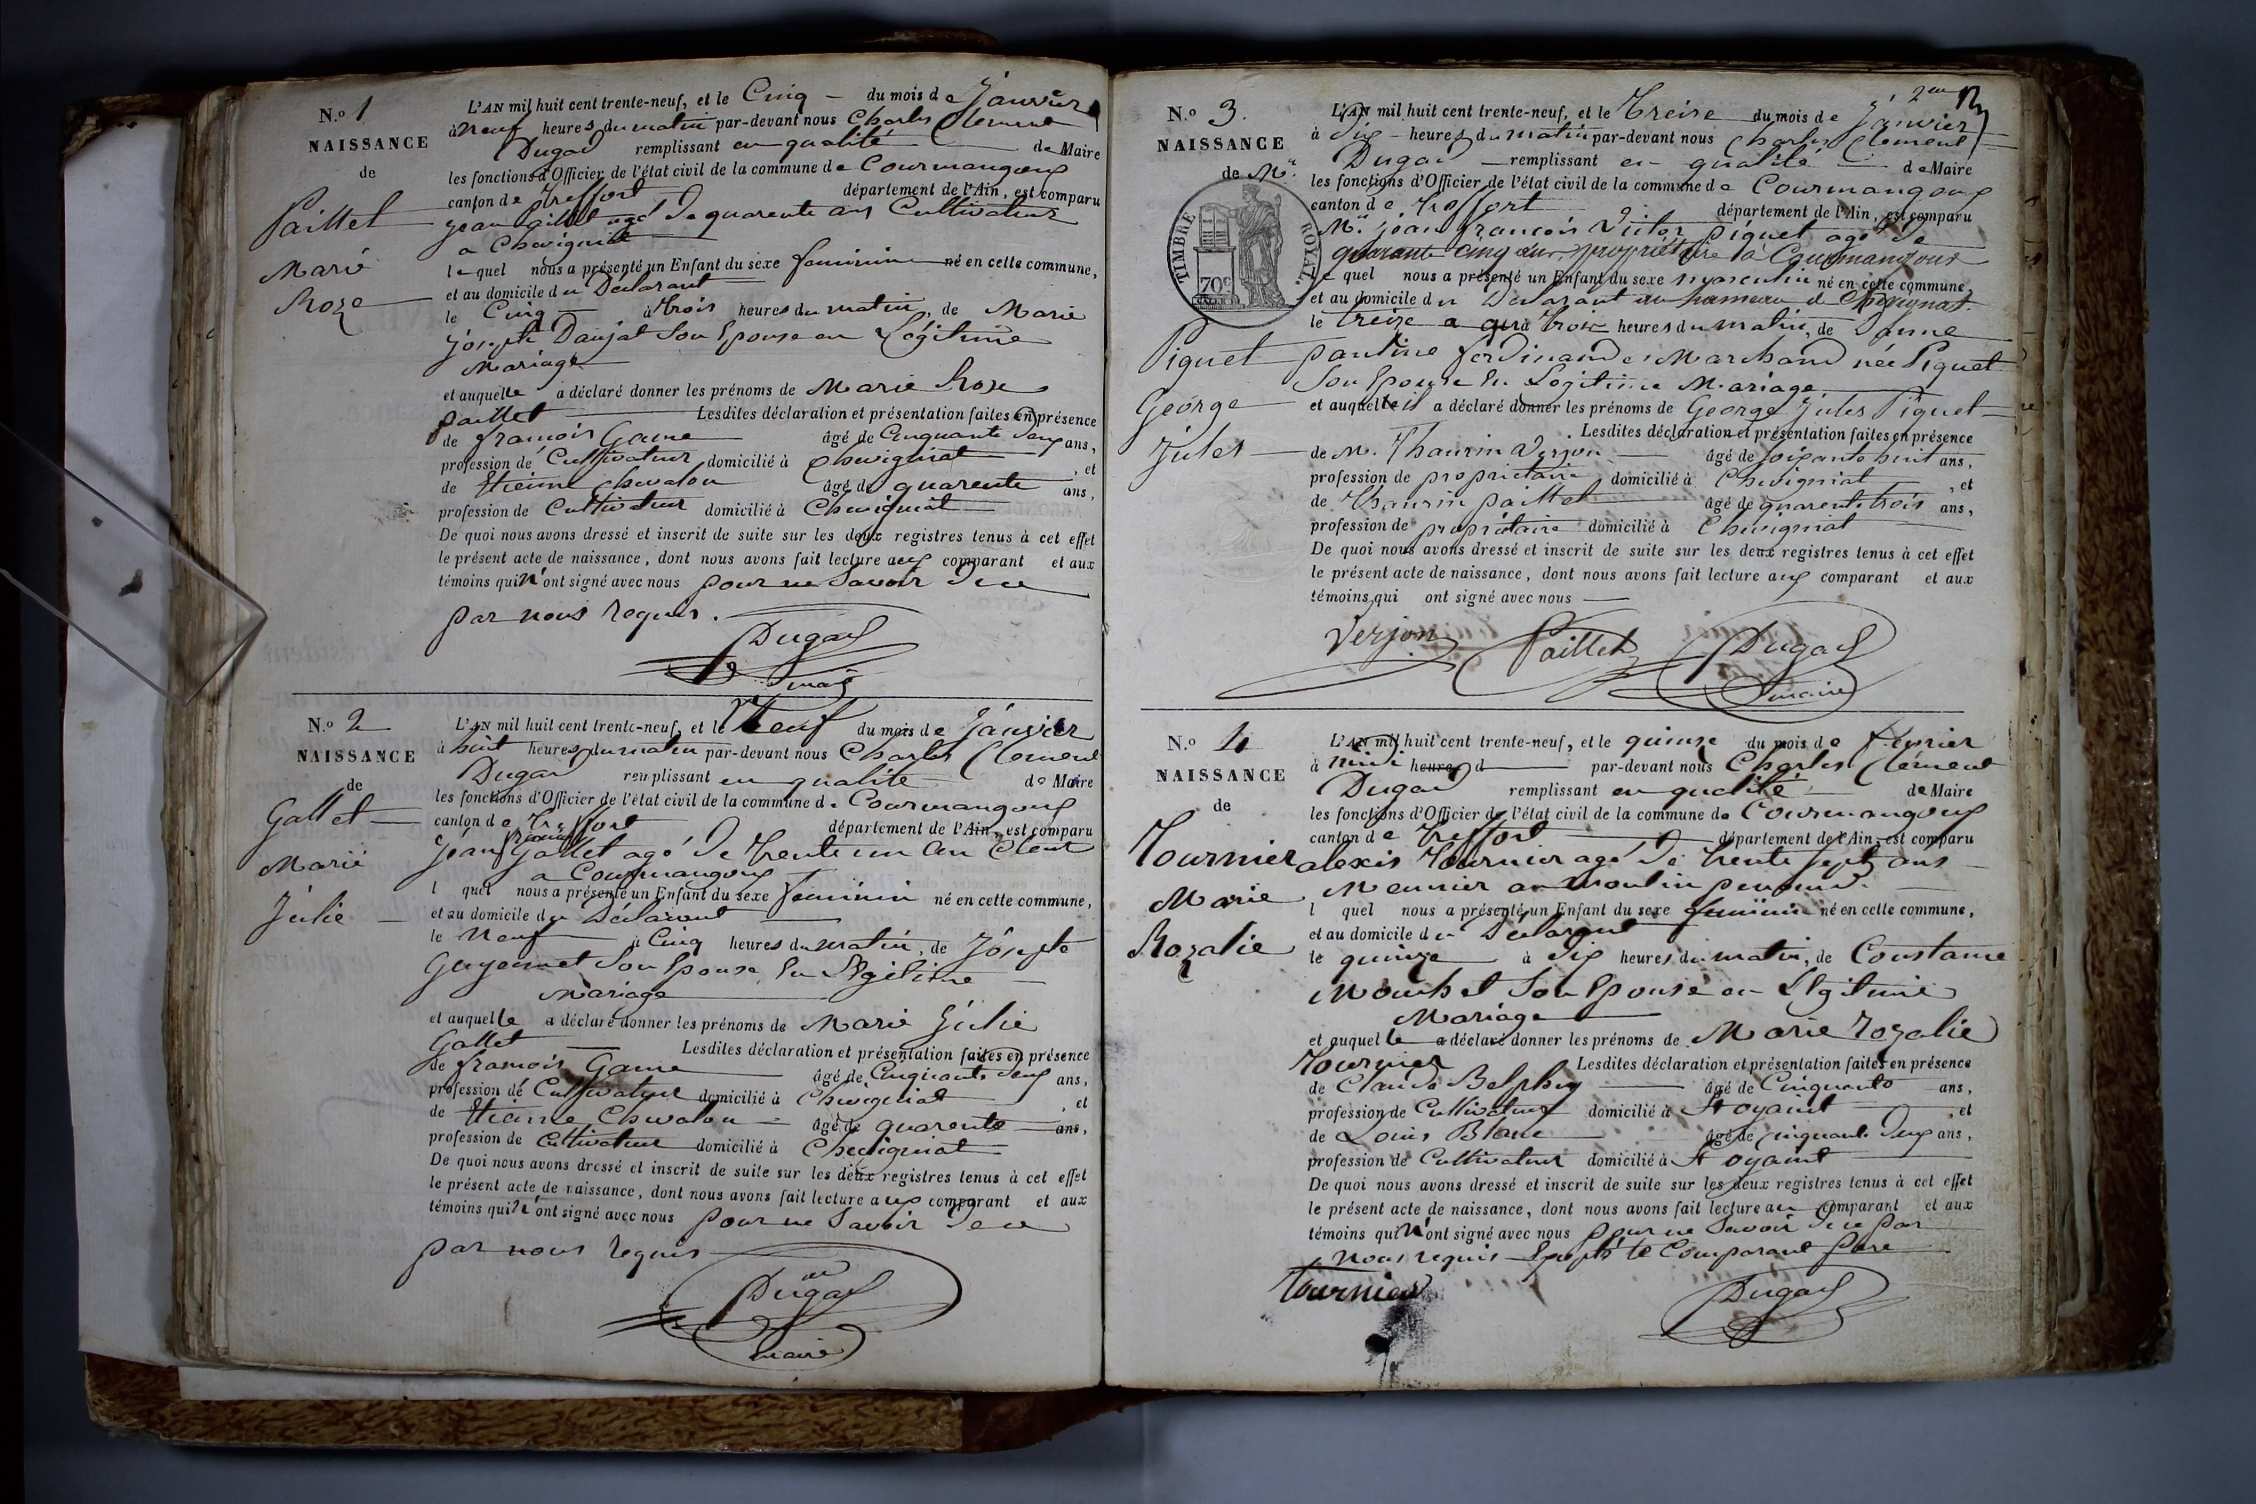 N.o 1
NAISSANCE
de
Paillet
Marie
Roze
L'AN mil huit cent trente-neuf, et le Cinq du mois de Janvier
à neuf heures du matin par-devant nous Charles Clement
Dugad remplissant en qualité de Maire
les fonctions d'Officier de l'état civil de la commune de Courmangoux
canton de Treffort département de l'Ain, est comparu
jean paillet agé de quarente ans Cultivateur
a Chevigniat
lequel nous a présenté un Enfant du sexe feminin né en cette commune,
et au domicile du Déclarant
le Cinq à trois heures du matin, de Marie
josephte Daujat Son Epouse en Légitime
Mariage
et auquelle a déclaré donner les prénoms de Marie Roze
paillet Lesdites déclaration et présentation faites en présence
de francois Game âgé de Cinquante deux ans,
profession de Cultivateur domicilié à Chevigniat , et
de Etienne Chevalon âgé de quarente ans,
profession de Cultivateur domicilié à Chevigniat
De quoi nous avons dressé et inscrit de suite sur les deux registres tenus à cet effet
le présent acte de naissance, dont nous avons fait lecture aux comparant et aux
témoins qui n'ont signé avec nous pour ne Savoir de ce
par nous requis.
Dugad
maire
N.o 2
NAISSANCE
de
Gallet
Marie
Julie
L'AN mil huit cent trente-neuf, et le Neuf du mois de Janvier
à huit heures du matin par-devant nous Charles Clement
Dugad remplissant en qualité de Maire
les fonctions d'Officier de l'état civil de la commune de Courmangoux
canton de Treffort département de l'Ain, est comparu
Jean Gallet agé de trente un an
a Courmangoux
l quel nous a présenté un Enfant du sexe feminin né en cette commune,
et au domicile du Déclarant
le Neuf à Cinq heures du matin, de Josephte
Guyennet Son Epouse En Légitime
Mariage
et auquelle a déclaré donner les prénoms de Marie Julie
Gallet Lesdites déclaration et présentation faites en présence
de francois Game âgé de Cinquante deux ans,
profession de Cultivateur domicilié à Chevigniat , et
de Etienne Chevalon âgé de quarente ans,
profession de Cultivateur domicilié à Chevigniat
De quoi nous avons dressé et inscrit de suite sur les deux registres tenus à cet effet
le présent acte de naissance, dont nous avons fait lecture aux comparant et aux
témoins qui n'ont signé avec nous pour ne Savoir de ce
par nous requis
Dugad
maire
2em
N.o 3.
NAISSANCE
de Mr
TIMBRE ROYAL.
70c
Piguet
George
Jules
L'AN mil huit cent trente-neuf, et le Treize du mois de Janvier
à dix heures du matin par-devant nous Charles Clement
Dugad remplissant en qualité de Maire
les fonctions d'Officier de l'état civil de la commune de Courmangoux
canton de Treffort département de l'Ain, est comparu
Mr jean francois Victor piguet agé de
quarante Cinq ans, propriétaire à Courmangoux
le quel nous a présenté un Enfant du sexe masculin né en cette commune,
et au domicile du Déclarant au hameau de Chevignat.
le treize a trois heures du matin, de Dame
pauline ferdinande Marchand née Piguet
Son Epouse En Legitime Mariage
et auquel il a déclaré donner les prénoms de George Jules Piguet
Lesdites déclaration et présentation faites en présence
de M. Thaurin Verjon âgé de soixante huit ans,
profession de propriétaire domicilié à Chevigniat , et
de Thaurin paillet âgé de quarente trois ans,
profession de propriétaire domicilié à Chevigniat
De quoi nous avons dressé et inscrit de suite sur les deux registres tenus à cet effet
le présent acte de naissance, dont nous avons fait lecture aux comparant et aux
témoins qui ont signé avec nous
Verjon Paillet Dugad
maire
N.o 4
NAISSANCE
de
Tournier
Marie
Rozalie
L'AN mil huit cent trente-neuf, et le quinze du mois de fevrier
à midi heures d par-devant nous Charles Clément
Dugad remplissant en qualité de Maire
les fonctions d'Officier de l'état civil de la commune de Courmangoux
canton de Treffort département de l'Ain, est comparu
alexis Tournier agé de trente sept ans
Meunier au moulin
l quel nous a présenté un Enfant du sexe feminin né en cette commune,
et au domicile du Déclarant
le quinze à dix heures du matin, de Constance
Mouchet Son Epouse en Légitime
Mariage
et auquelle a déclaré donner les prénoms de Marie rozalie
Tournier Lesdites déclaration et présentation faites en présence
de Claude Belphuy âgé de Cinquante ans,
profession de Cultivateur domicilié à St oyaint , et
de Louis Blanc âgé de cinquante deux ans,
profession de Cultivateur domicilié à St oyaint
De quoi nous avons dressé et inscrit de suite sur les deux registres tenus à cet effet
le présent acte de naissance, dont nous avons fait lecture au comparant et aux
témoins qui n'ont signé avec nous pour ne Savoir de ce par
Nous requis Excepté le Comparant père
Tournier Dugad